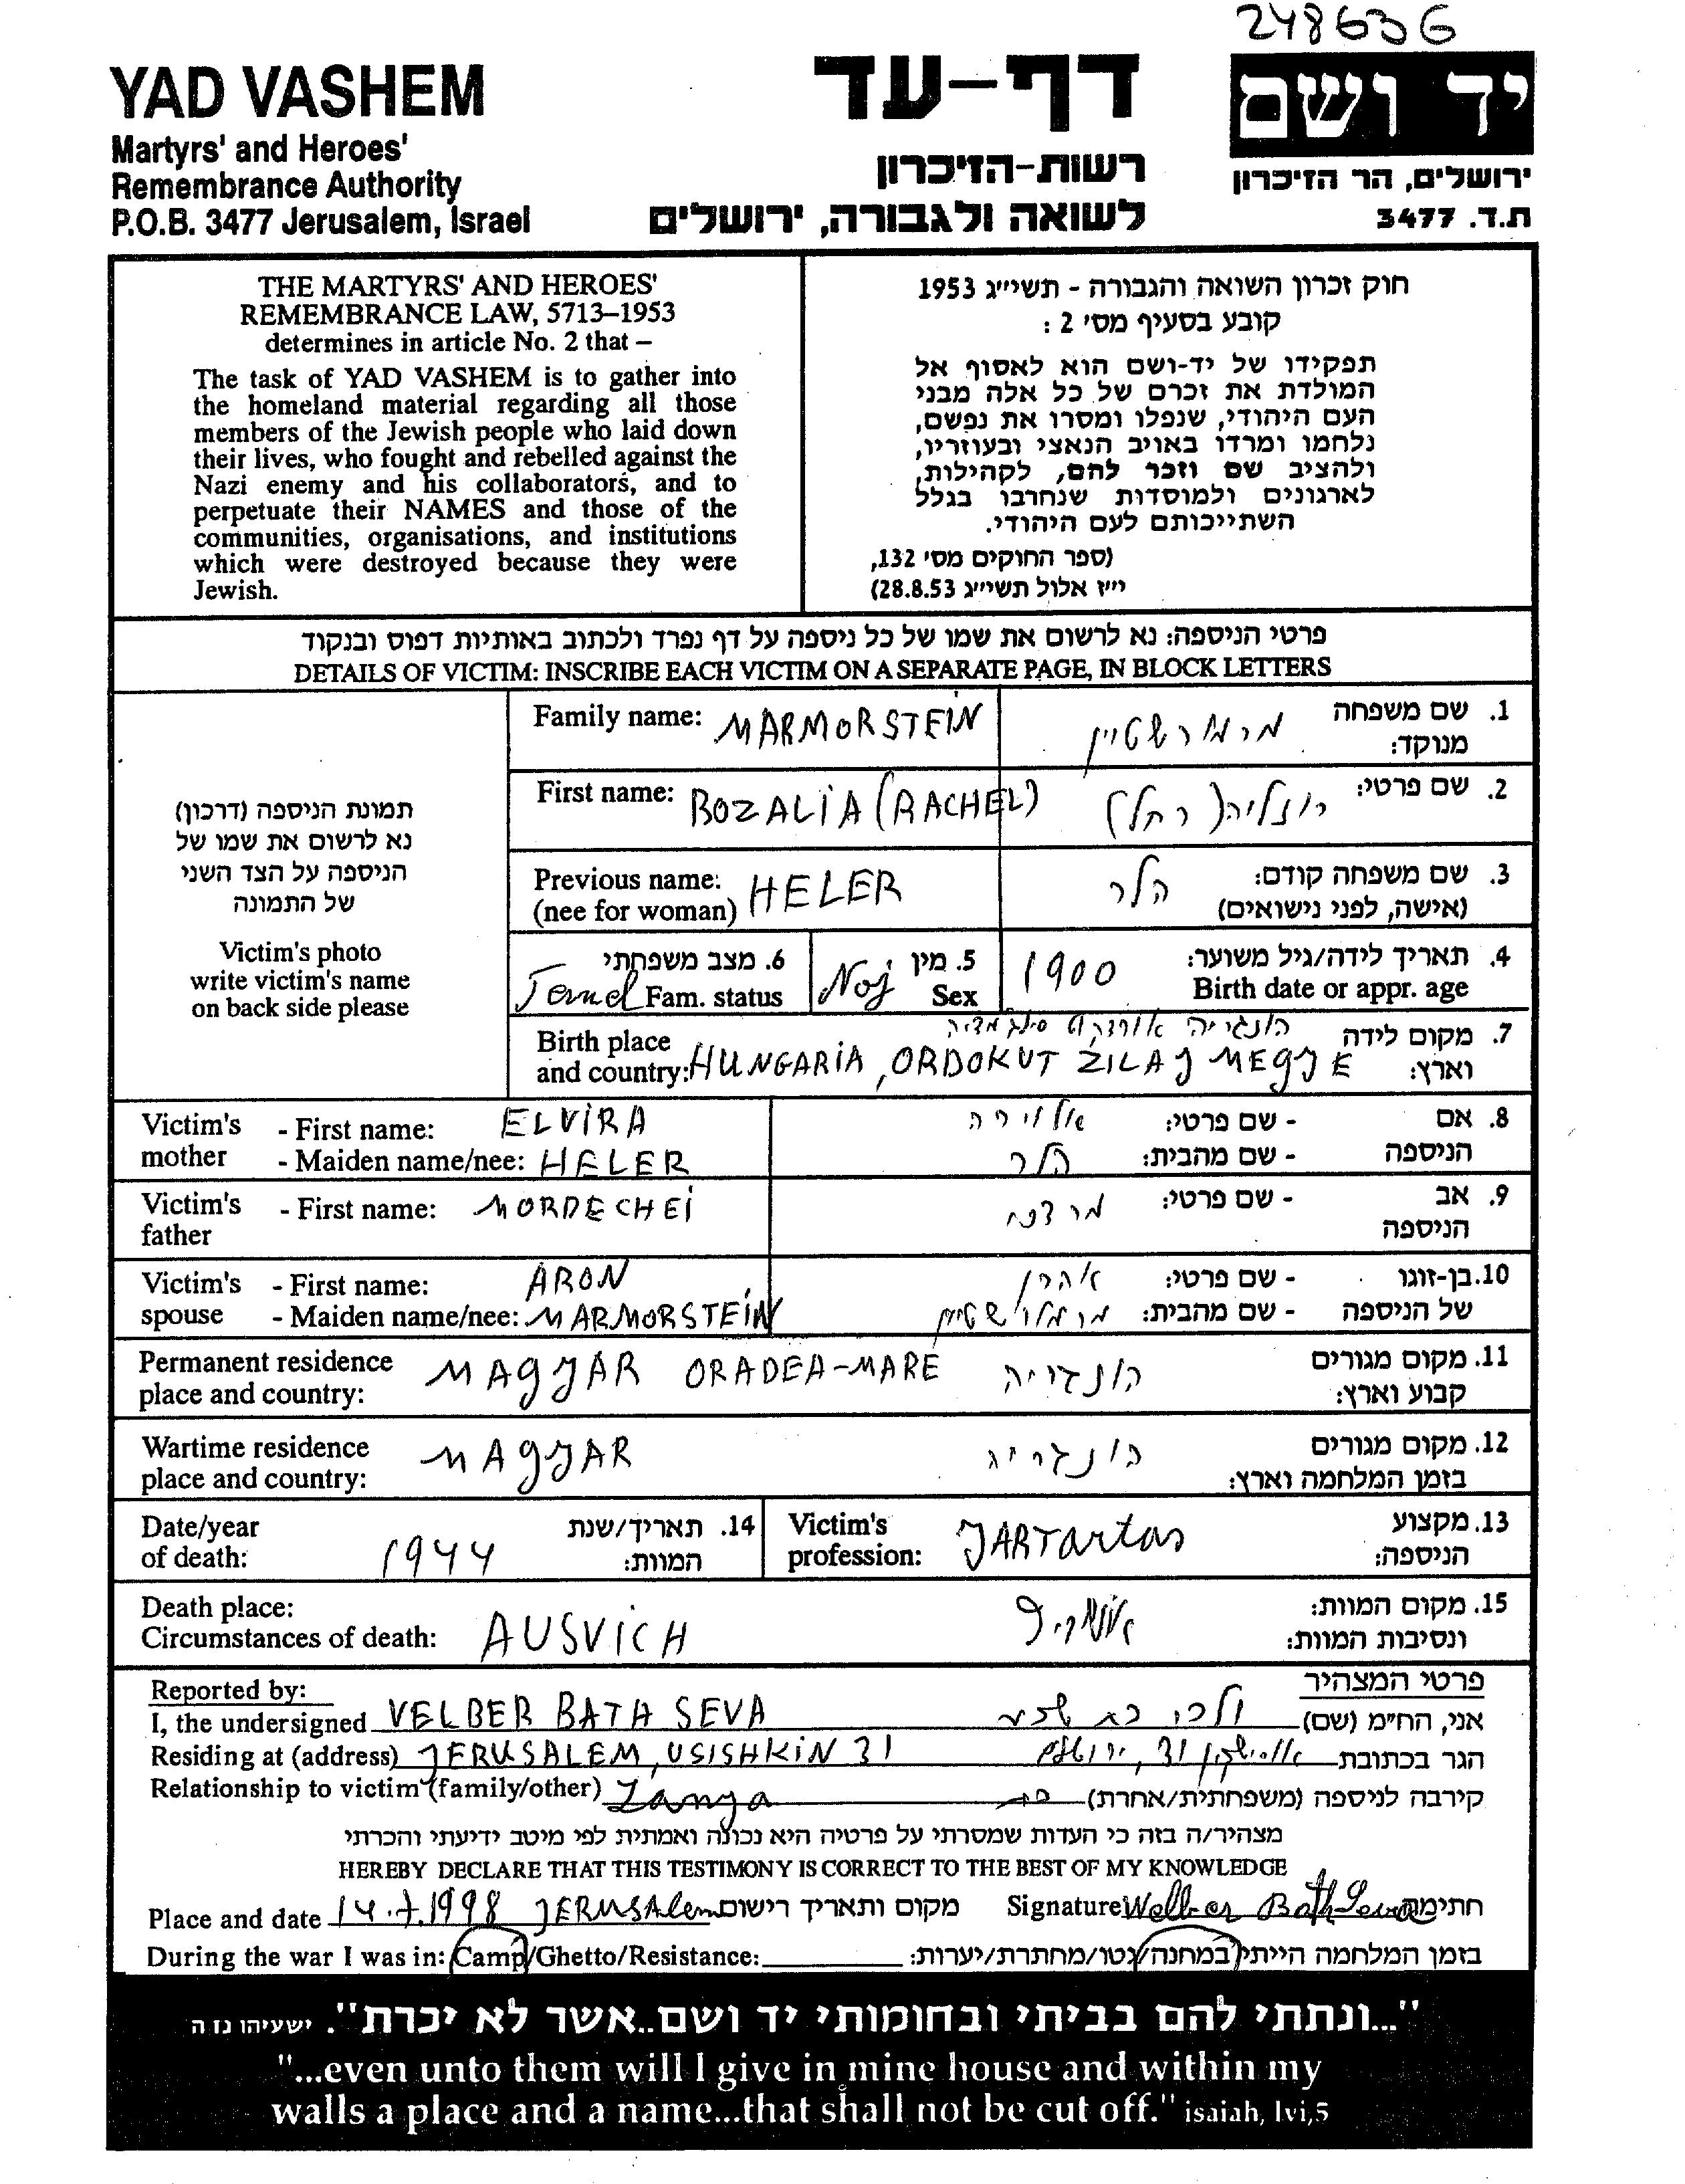 248636
YAD VASHEM
Martyrs' and Heroes'
Remembrance Authority
P.O.B. 3477 Jerusalem, Israel
דף-עד
רשות-הזיכרון
לשואה ולגבורה, ירושלים
יד ושם
ירושלים, הר הזיכרון
ת.ד. 3477
THE MARTYRS' AND HEROES'
REMEMBRANCE LAW, 5713–1953
determines in article No. 2 that –
The task of YAD VASHEM is to gather into
the homeland material regarding all those
members of the Jewish people who laid down
their lives, who fought and rebelled against the
Nazi enemy and his collaborators, and to
perpetuate their NAMES and those of the
communities, organisations, and institutions
which were destroyed because they were
Jewish.
חוק זכרון השואה והגבורה - תשי״ג 1953
קובע בסעיף מס׳ 2 :
תפקידו של יד-ושם הוא לאסוף אל
המולדת את זכרם של כל אלה מבני
העם היהודי, שנפלו ומסרו את נפשם,
נלחמו ומרדו באויב הנאצי ובעוזריו,
ולהציב שם וזכר להם, לקהילות,
לארגונים ולמוסדות שנחרבו בגלל
השתייכותם לעם היהודי.
(ספר החוקים מס׳ 132,
י״ז אלול תשי״ג 28.8.53)
פרטי הניספה: נא לרשום את שמו של כל ניספה על דף נפרד ולכתוב באותיות דפוס ובנקוד
DETAILS OF VICTIM: INSCRIBE EACH VICTIM ON A SEPARATE PAGE, IN BLOCK LETTERS
תמונת הניספה (דרכון)
נא לרשום את שמו של
הניספה על הצד השני
של התמונה
Victim's photo
write victim's name
on back side please
Family name: MARMORSTEIN מרמורשטיין 1. שם משפחה
מנוקד:
First name: BOZALIA (RACHEL) רוזליה (רחל) 2. שם פרטי:
Previous name: HELER הלר 3. שם משפחה קודם:
(nee for woman) (אישה, לפני נישואים)
6. מצב משפחתי 5. מין 1900 4. תאריך לידה/גיל משוער:
Fam. status Noj Sex Birth date or appr. age
הונגריה 7. מקום לידה
Birth place
and country: HUNGARIA, ORDOKUT ZILAJ MEGJE וארץ:
Victim's - First name: ELVIRA אלוירה - שם פרטי: 8. אם
mother - Maiden name/nee: HELER הלר - שם מהבית: הניספה
Victim's - First name: MORDECHEI מרדכי - שם פרטי: 9. אב
father הניספה
Victim's - First name: ARON אהרן - שם פרטי: 10. בן-זוגו
spouse - Maiden name/nee: MARMORSTEIN מרמורשטיין - שם מהבית: של הניספה
Permanent residence MAGJAR ORADEA-MARE הונגריה 11. מקום מגורים
place and country: קבוע וארץ:
Wartime residence MAGJAR הונגריה 12. מקום מגורים
place and country: בזמן המלחמה וארץ:
Date/year 1944 14. תאריך/שנת
of death: המוות:
Victim's JARTartas 13. מקצוע
profession: הניספה:
Death place: 15. מקום המוות:
Circumstances of death: AUSVICH אושויץ ונסיבות המוות:
Reported by: פרטי המצהיר
I, the undersigned VELBER BATH SEVA ולבר בת שבע אני, הח״מ (שם)
Residing at (address) JERUSALEM, USISHKIN 31 אוסישקין 31, ירושלים הגר בכתובת
Relationship to victim (family/other) Lánya בת קירבה לניספה (משפחתית/אחרת)
מצהיר/ה בזה כי העדות שמסרתי על פרטיה היא נכונה ואמתית לפי מיטב ידיעתי והכרתי
HEREBY DECLARE THAT THIS TESTIMONY IS CORRECT TO THE BEST OF MY KNOWLEDGE
Place and date 14.7.1998 JERUSAlem מקום ותאריך רישום Signature Welber BathSeva חתימה
During the war I was in: Camp/Ghetto/Resistance: בזמן המלחמה הייתי במחנה/גטו/מחתרת/יערות:
"...ונתתי להם בביתי ובחומותי יד ושם..אשר לא יכרת". ישעיהו נו ה
"...even unto them will I give in mine house and within my
walls a place and a name...that shall not be cut off." isaiah, lvi,5